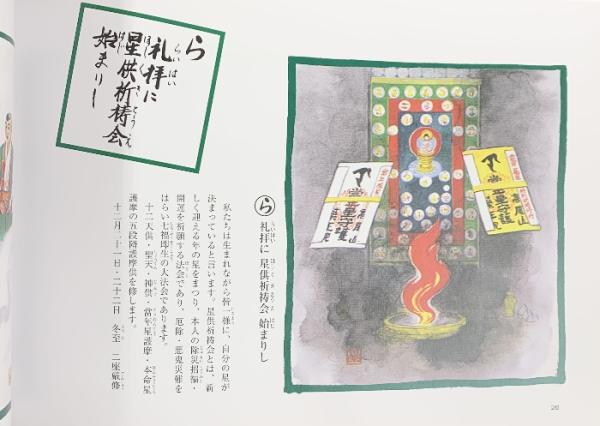 ら
礼拝に
星供祈祷会
始まりし
ら 礼拝に 星供祈祷会 始まりし
私たちは生まれながら皆一様に、自分の星が
決まっていると言います。星供祈祷会とは、新
しく迎える年の星をまつり、本人の除災招福・
開運を祈願する法会であり、厄・悪鬼災難を
はらい七福即生の大法会であります。
十二天供・聖天・神供・当年星護摩・本命星
護摩の五段護摩供を修します。
十二月二十一日・二十二日 冬至 二座厳修
高月山
26